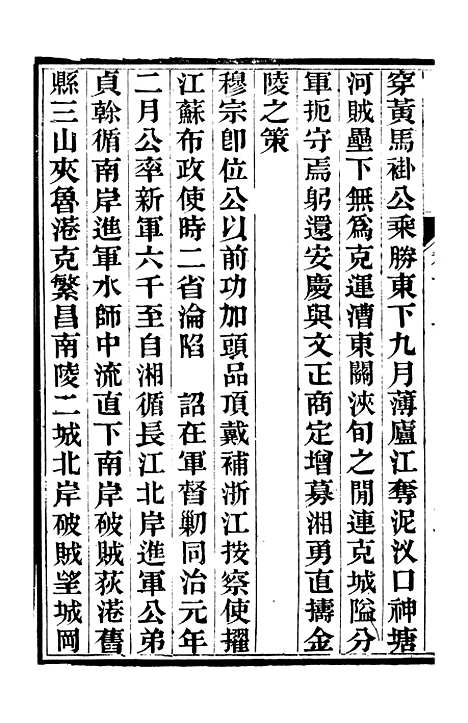 穿黃馬褂公乘勝東下九月薄廬江奪泥汊口神塘
河賊壘下無爲克運漕東關浹旬之閒連克城隘分
軍扼守焉躬還安慶與文正商定增募湘勇直擣金
陵之策
穆宗卽位公以前功加頭品頂戴補浙江按察使擢
江蘇布政使時二省淪陷　詔在軍督勦同治元年
二月公率新軍六千至自湘循長江北岸進軍公弟
貞榦循南岸進軍水師中流直下南岸破賊荻港舊
縣三山夾魯港克繁昌南陵二城北岸破賊望城岡